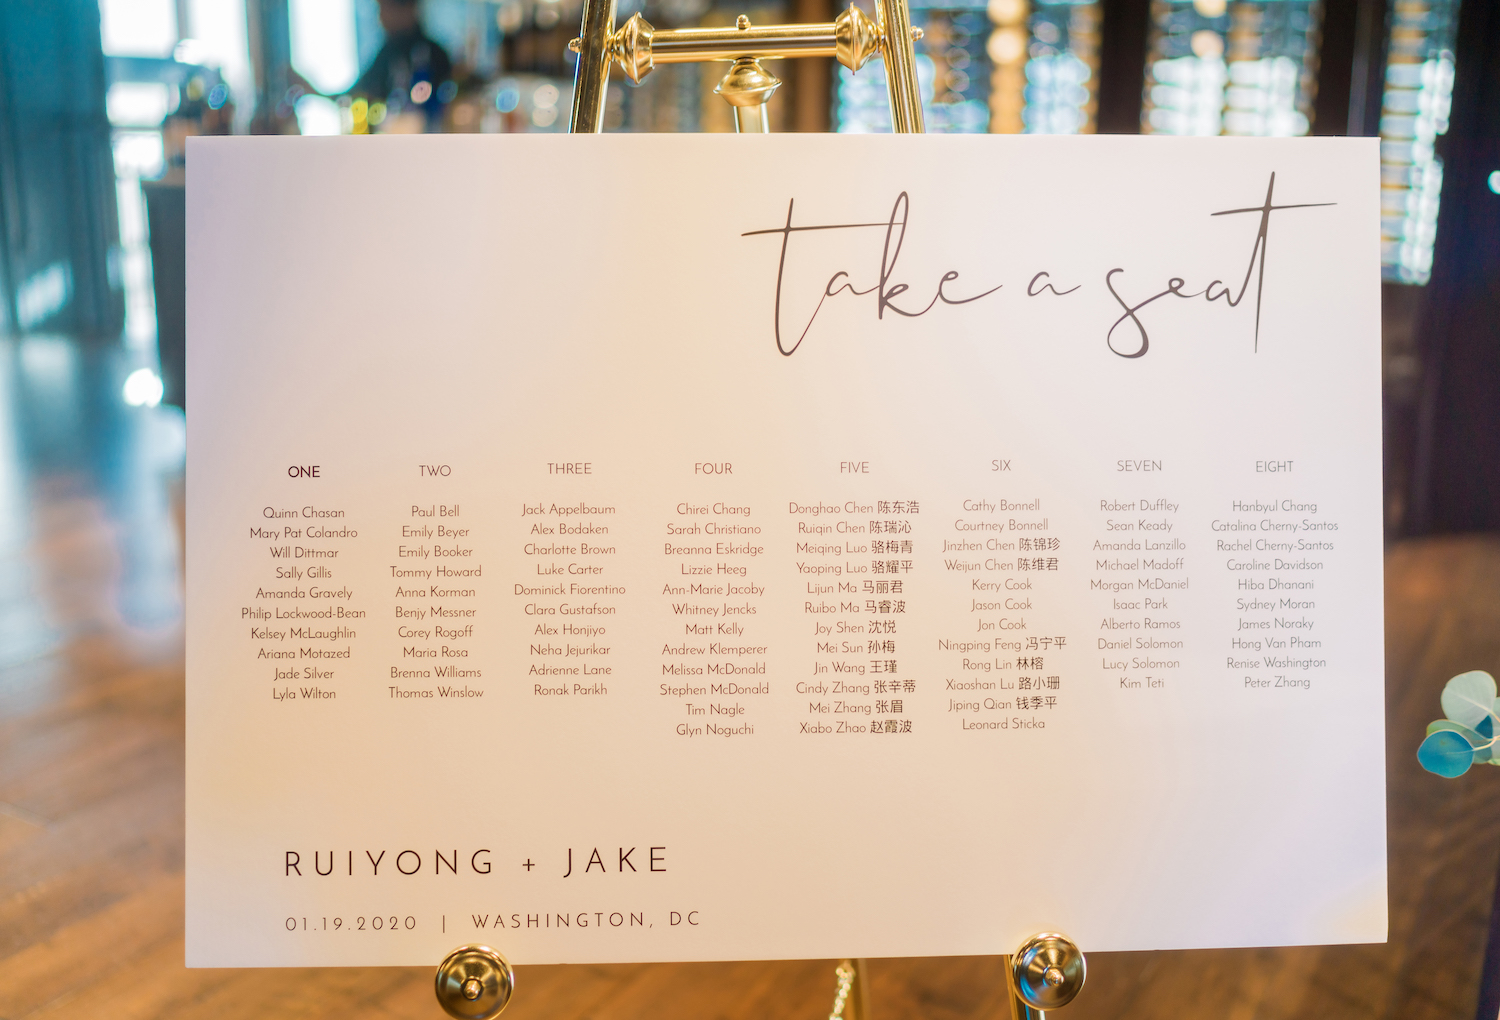 take a seat
ONE
Quinn Chasan
Mary Pat Colandro
Will Dittmar
Sally Gillis
Amanda Gravely
Philip Lockwood-Bean
Kelsey McLaughlin
Ariana Motazed
Jade Silver
Lyla Wilton
TWO
Paul Bell
Emily Beyer
Emily Booker
Tommy Howard
Anna Korman
Benjy Messner
Corey Rogoff
Maria Rosa
Brenna Williams
Thomas Winslow
THREE
Jack Appelbaum
Alex Bodaken
Charlotte Brown
Luke Carter
Dominick Fiorentino
Clara Gustafson
Alex Honjiyo
Neha Jejurikar
Adrienne Lane
Ronak Parikh
FOUR
Chirei Chang
Sarah Christiano
Breanna Eskridge
Lizzie Heeg
Ann-Marie Jacoby
Whitney Jencks
Matt Kelly
Andrew Klemperer
Melissa McDonald
Stephen McDonald
Tim Nagle
Glyn Noguchi
FIVE
Donghao Chen 陈东浩
Ruiqin Chen 陈瑞沁
Meiqing Luo 骆梅青
Yaoping Luo 骆耀平
Lijun Ma 马丽君
Ruibo Ma 马睿波
Joy Shen 沈悦
Mei Sun 孙梅
Jin Wang 王瑾
Cindy Zhang 张辛蒂
Mei Zhang 张眉
Xiabo Zhao 赵霞波
SIX
Cathy Bonnell
Courtney Bonnell
Jinzhen Chen 陈锦珍
Weijun Chen 陈维君
Kerry Cook
Jason Cook
Jon Cook
Ningping Feng 冯宁平
Rong Lin 林榕
Xiaoshan Lu 路小珊
Jiping Qian 钱季平
Leonard Sticka
SEVEN
Robert Duffley
Sean Keady
Amanda Lanzillo
Michael Madoff
Morgan McDaniel
Isaac Park
Alberto Ramos
Daniel Solomon
Lucy Solomon
Kim Teti
EIGHT
Hanbyul Chang
Catalina Cherny-Santos
Rachel Cherny-Santos
Caroline Davidson
Hiba Dhanani
Sydney Moran
James Noraky
Hong Van Pham
Renise Washington
Peter Zhang
RUIYONG + JAKE
01.19.2020 | WASHINGTON, DC